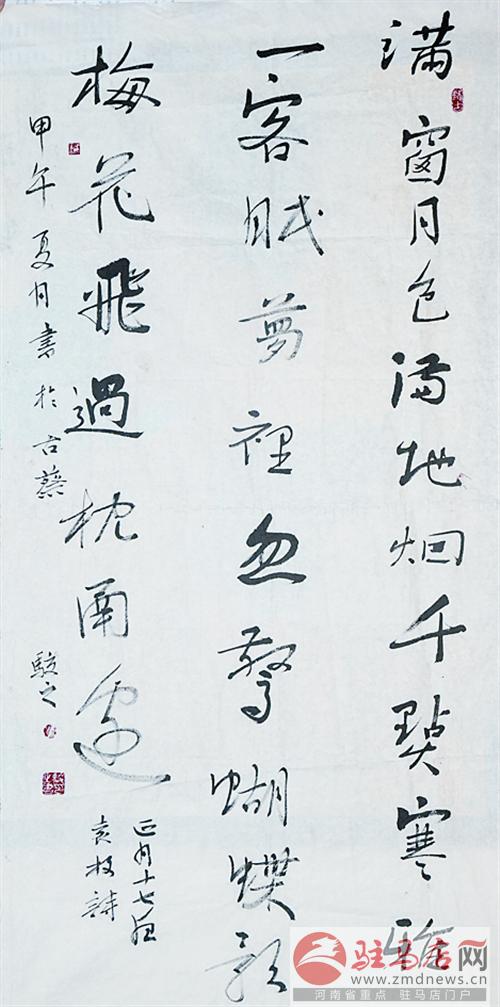 滿窗月色滿地烟千點寒鴉
一客眠夢裡忽驚蝴蝶影
梅花飛過枕函邊
正月十七夜
袁枚詩
甲午夏月書於古蔡
駿之
驻马店网
www.zmdnews.cn
河南省重点 驻马店门户